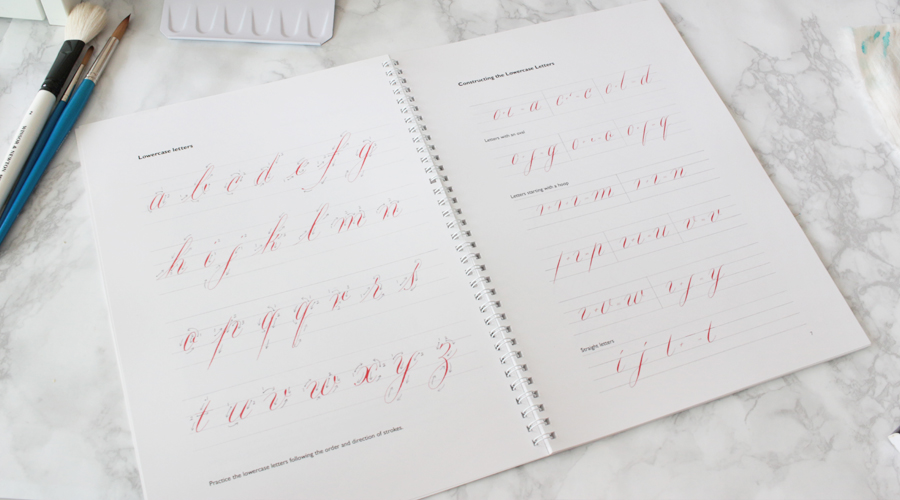 Lowercase letters
a b c d e f g
h i j k l m n
o p q q r r s
t u v w x y z
Practice the lowercase letters following the order and direction of strokes.
Constructing the Lowercase Letters
a c d
Letters with an oval
g o q
Letters starting with a hoop
m n
p u v
w y
Straight letters
i j l t
WINSOR & NEWTON